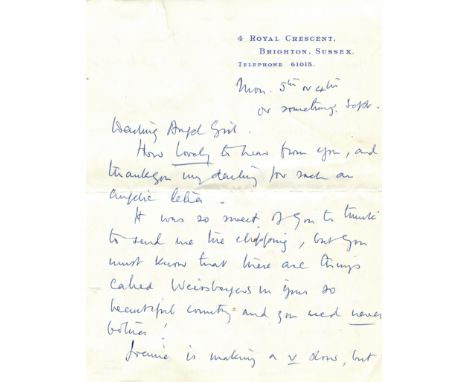 4 Royal Crescent,
Brighton, Sussex.
Telephone 61015.
Mon. 5th or 6th
or something. Sept.
Darling Angel Girl.
How lovely to hear from you, and
thankyou my darling for such an
angelic letter.
It was so sweet of you to think
to send me the clipping, but you
must know that there are things
called Weissbergers in your so
beautiful country - and you need never
bother!
is making a v slow, but